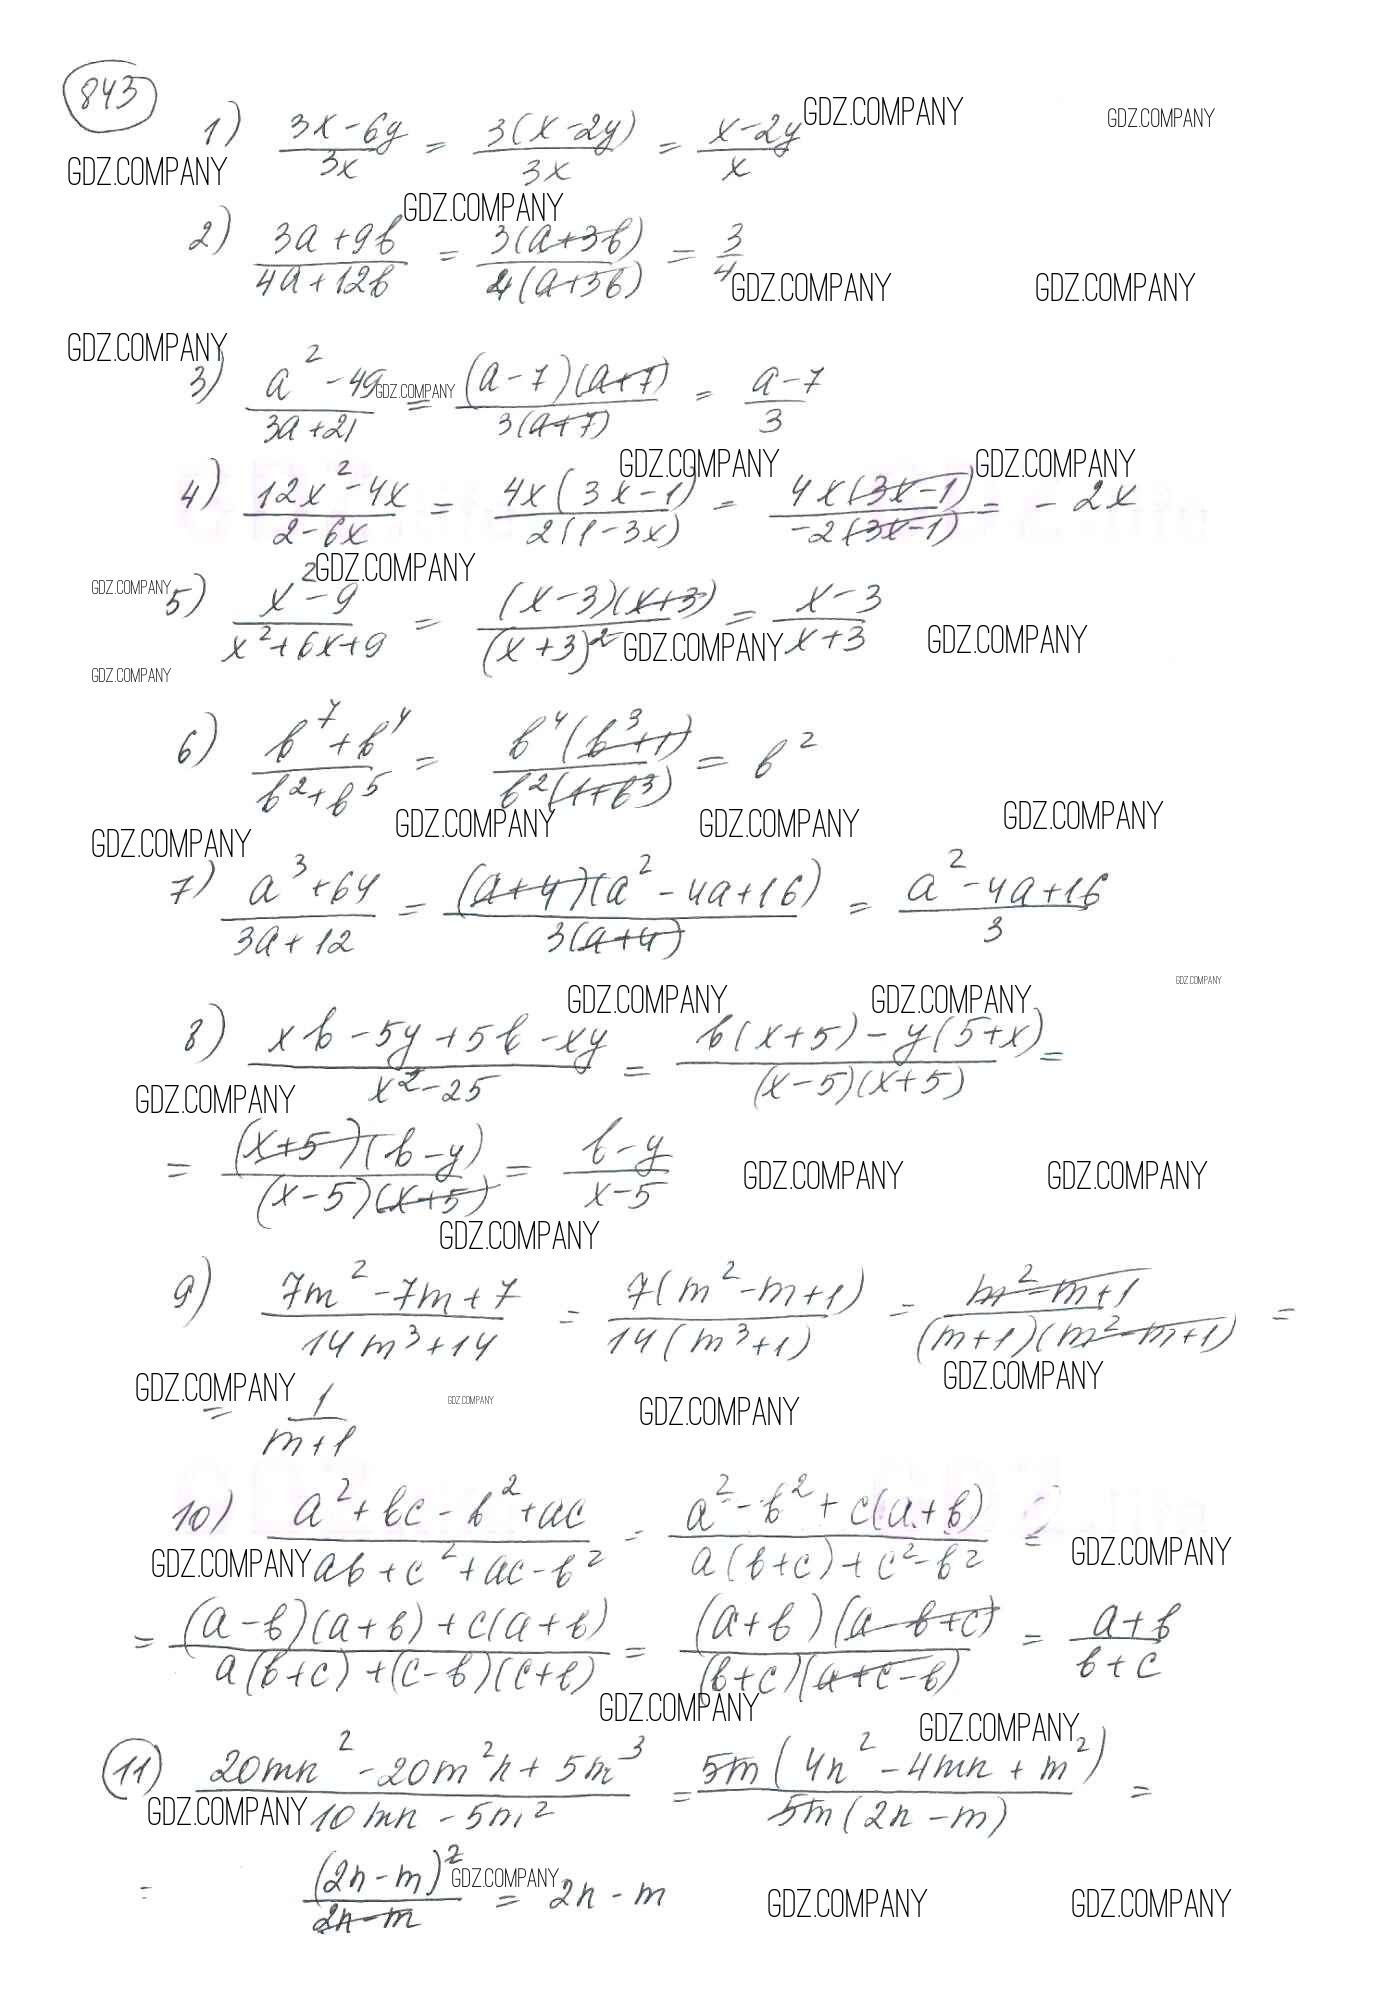 843
1) (3x-6y)/(3x) = (3(x-2y))/(3x) = (x-2y)/x
GDZ.COMPANY GDZ.COMPANY
GDZ.COMPANY
GDZ.COMPANY
2) (3a+9b)/(4a+12b) = (3(a+3b))/(4(a+3b)) = 3/4
GDZ.COMPANY GDZ.COMPANY
GDZ.COMPANY
3) (a²-49)/(3a+21) = ((a-7)(a+7))/(3(a+7)) = (a-7)/3
GDZ.COMPANY
GDZ.COMPANY GDZ.COMPANY
4) (12x²-4x)/(2-6x) = (4x(3x-1))/(2(1-3x)) = (4x(3x-1))/(-2(3x-1)) = -2x
GDZ.COMPANY
GDZ.COMPANY
5) (x²-9)/(x²+6x+9) = ((x-3)(x+3))/((x+3)²) = (x-3)/(x+3)
GDZ.COMPANY GDZ.COMPANY
GDZ.COMPANY
6) (b⁷+b⁴)/(b²+b⁵) = (b⁴(b³+1))/(b²(1+b³)) = b²
GDZ.COMPANY GDZ.COMPANY GDZ.COMPANY GDZ.COMPANY
7) (a³+64)/(3a+12) = ((a+4)(a²-4a+16))/(3(a+4)) = (a²-4a+16)/3
GDZ.COMPANY
GDZ.COMPANY GDZ.COMPANY
8) (xb-5y+5b-xy)/(x²-25) = (b(x+5)-y(5+x))/((x-5)(x+5)) =
GDZ.COMPANY
= ((x+5)(b-y))/((x-5)(x+5)) = (b-y)/(x-5)
GDZ.COMPANY GDZ.COMPANY
GDZ.COMPANY
9) (7m²-7m+7)/(14m³+14) = (7(m²-m+1))/(14(m³+1)) = (m²-m+1)/((m+1)(m²-m+1)) =
GDZ.COMPANY GDZ.COMPANY
= 1/(m+1)
GDZ.COMPANY GDZ.COMPANY
10) (a²+bc-b²+ac)/(ab+c²+ac-b²) = (a²-b²+c(a+b))/(a(b+c)+c²-b²) =
GDZ.COMPANY GDZ.COMPANY
= ((a-b)(a+b)+c(a+b))/(a(b+c)+(c-b)(c+b)) = ((a+b)(a-b+c))/((b+c)(a+c-b)) = (a+b)/(b+c)
GDZ.COMPANY GDZ.COMPANY
11) (20mn²-20m²n+5m³)/(10mn-5m²) = (5m(4n²-4mn+m²))/(5m(2n-m)) =
GDZ.COMPANY
= ((2n-m)²)/(2n-m) = 2n-m
GDZ.COMPANY GDZ.COMPANY GDZ.COMPANY